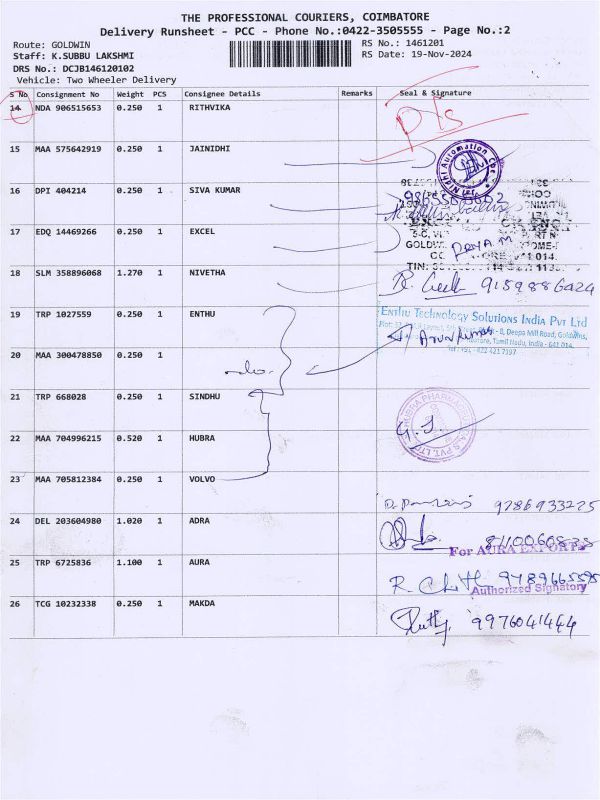 THE PROFESSIONAL COURIERS, COIMBATORE
Delivery Runsheet - PCC - Phone No.:0422-3505555 - Page No.:2
Route: GOLDWIN RS No.: 1461201
Staff: K.SUBBU LAKSHMI RS Date: 19-Nov-2024
DRS No.: DCJB146120102
Vehicle: Two Wheeler Delivery
S No Consignment No Weight PCS Consignee Details Remarks Seal & Signature
14 NDA 906515653 0.250 1 RITHVIKA
15 MAA 575642919 0.250 1 JAINIDHI
Nidhi Automation
16 DPI 404214 0.250 1 SIVA KUMAR
17 EDQ 14469266 0.250 1 EXCEL
PRIYA M
18 SLM 358896068 1.270 1 NIVETHA
9159886424
19 TRP 1027559 0.250 1 ENTHU
ENTHU TECHNOLOGY SOLUTIONS INDIA PVT LTD
Deepa Mill Road, Goldwins,
Tamil Nadu, India - 641 014.
Arunkumar
20 MAA 300478850 0.250 1
21 TRP 668028 0.250 1 SINDHU
22 MAA 704996215 0.520 1 HUBRA
23 MAA 705812384 0.250 1 VOLVO
9786933225
24 DEL 203604980 1.020 1 ADRA
For AURA EXPORTS
25 TRP 6725836 1.100 1 AURA
9789665595
Authorized Signatory
26 TCG 10232338 0.250 1 MAKDA
9976041444